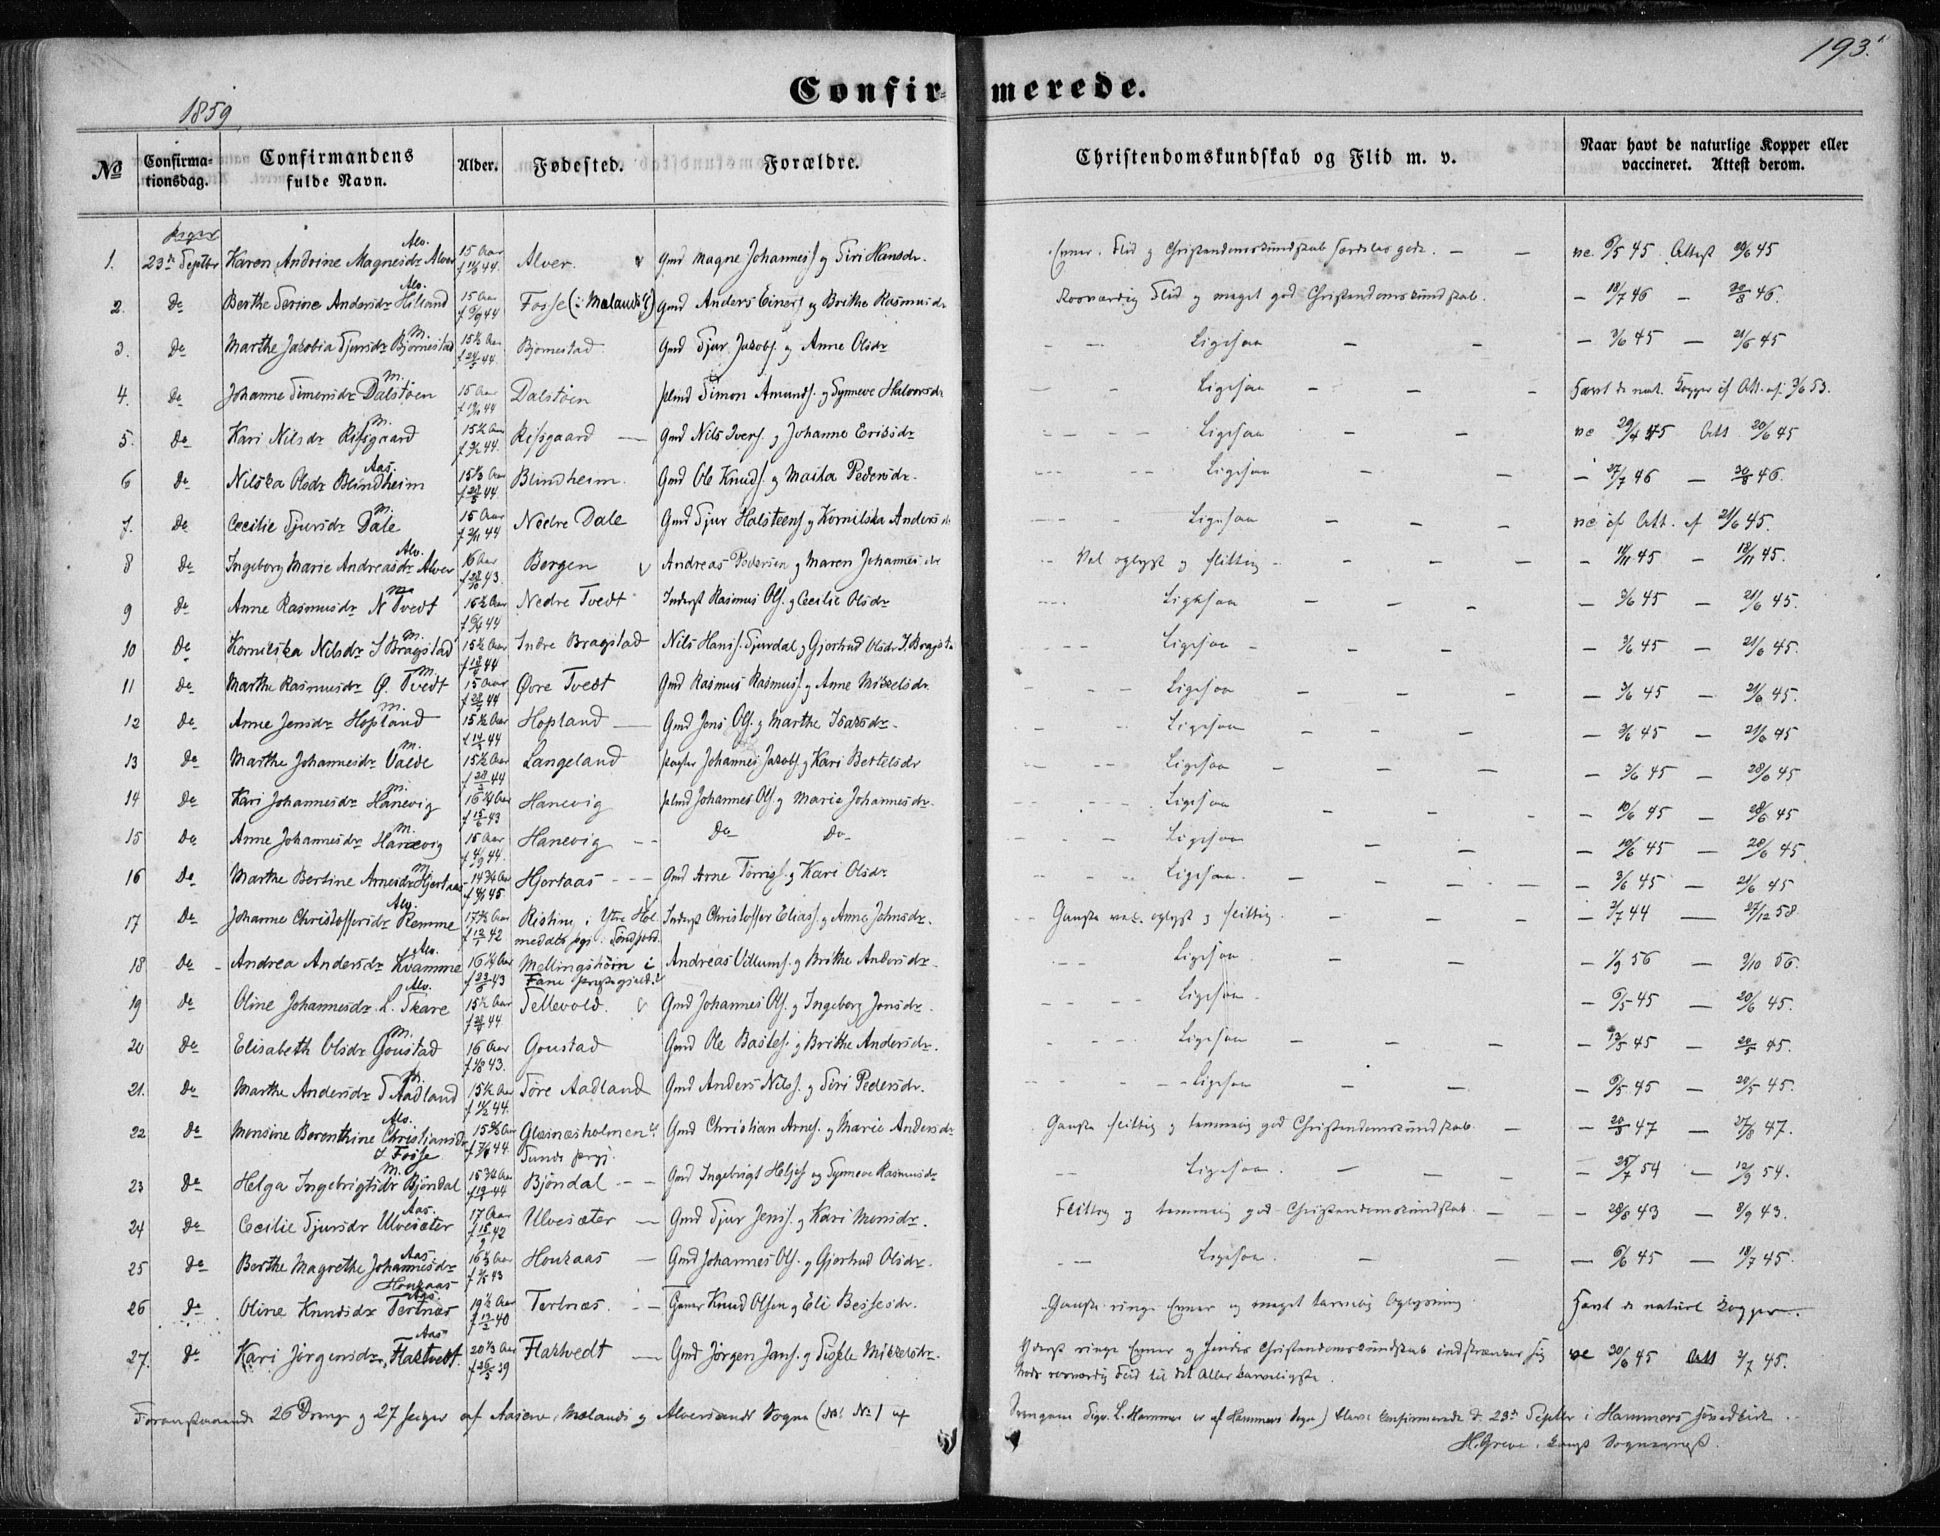 193.
Confirmerede.
1859.
No
Confirmationsdag.
Confirmandens fulde Navn.
Alder.
Fødested.
Forældre.
Christendomskundskab og Flid m. v.
Naar havt de naturlige Kopper eller vaccineret. Attest derom.
Piger
1. 23de Septbr Karen Andrine Magnesdr Alver Alv. 15 Aar Alver. Gmd Magne Johanness. og Siri Hansdr. Evner, Flid og Christendomskundskab særdeles gode. — — vc. 6/5 45 Attest 20/6 45
2. do Berthe Serine Andersdr Hilland Alv. 15 Aar Fosse (i Mælands S.) Gmd Anders Einers. og Brithe Rasmusdr Rosværdig Flid og meget god Christendomskundskab. — 18/7 46 — 30/8 46.
3. do Marthe Jakobia Sjursdr Bjørnestad M. 15½ Aar Bjørnestad Gmd Sjur Jakobs. og Anne Olsdr Ligesaa — 3/6 45 — 21/6 45
4. do Johanne Simonsdr Dalstøen M. 15 Aar Dalstøen Simon Amunds. og Synneve Halvorsdr Ligesaa Havt de nat. Kopper if. Att. af 3/6 53.
5. do Kari Nilsdr Risgaard M. 15½ Aar Risgaard Gmd Nils Ivers. og Johanne Eriksdr Ligesaa vc 29/4 45 Att 20/6 45
6 do Nilska Olsdr Blindheim Aas. 15⅓ Aar Blindheim. Gmd Ole Knuds. og Maika Pedersdr. Ligesaa — 27/7 46 — 30/8 46.
7. do Cecilie Sjursdr Dale M. 15 Aar Nedre Dale Gmd Sjur Halsteens. og Kornilska Andersdr Ligesaa vc if Att. af 21/6 45.
8 do Ingeborg Marie Andreasdr Alver Alv. 16 Aar Bergen Andreas Pedersen og Maren Johannesdr Vel oplyst og flittig — 11/11 45 — 18/11 45.
9 do Anne Rasmusdr N Tvedt M. 15½ Aar Nedre Tvedt Inderst Rasmus Ols. og Cecilie Olsdr Ligesaa — 3/6 45 — 21/6 45.
10 do Kornilska Nilsdr I Bragstad M. 15½ Aar Indre Bragstad Nils Hans. Sjurdal og Gjertrud Olsdr I. Bragsta Ligesaa — 3/6 45 — 21/6 45.
11 do Marthe Rasmusdr Ø. Tvedt M. 15 Aar Øvre Tvedt Gmd Rasmus Rasmuss. og Anne Mikkelsdr. Ligesaa — 3/6 45 — 21/6 45.
12 do Anne Jensdr Hopland M. 15½ Aar Hopland Gmd Jens Ols. og Marthe Isaksdr. Ligesaa — 3/6 45 — 21/6 45
13 do Marthe Johannesdr Valde M. 15½ Aar Langeland Johannes Jakobs. og Kari Bertelsdr Ligesaa — 3/6 45 — 28/6 45
14 do Kari Johannesdr Hanevig M. 16¼ Aar Hanevig Johannes Ols. og Marie Johannesdr. Ligesaa — 10/6 45 — 28/6 45
15 do Anne Johannesdr Hanevig M. 15 Aar Hanevig Do Do Ligesaa — 10/6 45 — 28/6 45.
16 Do Marthe Bertine Arnesdr Hjortaas M. 14¾ Aar Hjortaas Gmd Arne Torris. og Kari Olsdr Ligesaa. — 3/6 45 — 21/6 45
17 Do Johanne Christoffersdr Remme Alv. 17⅔ Aar Ristine, i Ytre Hol-medals pgj. Søndfjord. Inderst Christoffer Eliass. og Anne Johnsdr. Ganske vel oplyst og flittig — 3/7 44 — 27/12 58
18 Do Andrea Andersdr Kvamme Alv. 16¼ Aar Mellingshøin i Fane Præstegjeld Andreas Villums. og Brithe Andersdr. Ligesaa — 1/9 56 — 9/10 56.
19 Do Oline Johannesdr L. Skare Alv. 15½ Aar Tellevold. Gmd Johannes Ols. og Ingeborg Jensdr. Ligesaa — 6/5 45 — 20/6 45.
20 Do Elisabeth Olsdr Goustad M. 16 Aar Goustad Gmd Ole Bastes. og Brithe Andersdr. Ligesaa — 13/5 45 — 20/5 45.
21. Do Marthe Andersdr S Aadland M. 15½ Aar Søre Aadland Gmd Anders Nilss. og Siri Pedersdr. Ligesaa — 6/5 45 — 20/5 45.
22 Do Monsine Berenthine Christiansdr I Fosse Alv. Glæsnæsholmen i Sunds prgj. Gmd Christian Arnes. og Marie Andersdr Ganske flittig og temmelig god Christendomskundskab. — 20/8 47 — 27/8 47.
23 Do Helga Ingebrigtsdr Bjøndal M. 15¾ Aar Bjøndal Gmd Ingebrigt Heljes. og Synneve Rasmusdr Ligesaa. — 25/7 54 — 12/9 54.
24 Do Cecilie Sjursdr Ulvesæter Aas. 17 Aar Ulvesæter Gmd Sjur Jens. og Kari Monsdr. Flittig og temmelig god Christendomskundskab. — 28/8 43 — 8/9 43.
25 Do Berthe Magrethe Johannesdr Houkaas Aas. 16⅓ Aar Houkaas Gmd Johannes Ols. og Gjertrud Olsdr. Ligesaa. — 6/6 45 — 18/7 45.
26 Do Oline Knudsdr Tertnæs Aas. 19½ Aar Tertnæs. Knud Olsen og Eli Bessesdr. Ganske ringe Evner og meget tarvelig Oplysning. Havt de naturl Kopper.
27. do Kari Jørgensdr Flaktvedt. Aas 20⅓ Aar Flaktvedt Gmd Jørgen Jans. og Mikkelsdr. Yderst ringe Evner og hendes Christendomskundskab indskrænker sig trods rosværdig Flid til det Allertarveligste. vc 30/6 45 Att 2/7 45.
Foranstaaende 26 Drenge og 27 Piger af Aasene, Mælands og Alversunds Sogne (No 1 af Drengene Sigv. L. Hammer er af Hammers Sogn) bleve confirmerede d. 23de Septbr i Hammers Hovedkirke.
H. Greve, Sogneprest.